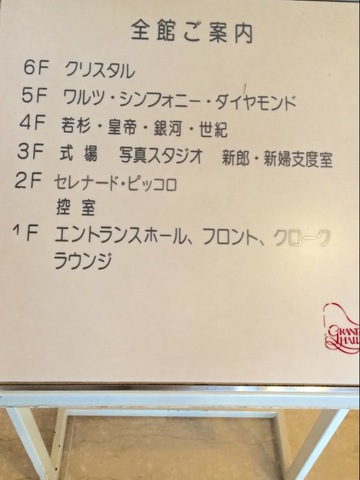 全館ご案内
6F クリスタル
5F ワルツ・シンフォニー・ダイヤモンド
4F 若杉・皇帝・銀河・世紀
3F 式場 写真スタジオ 新郎・新婦支度室
2F セレナード・ピッコロ
控室
1F エントランスホール、フロント、クローク
ラウンジ
GRAND
HALL